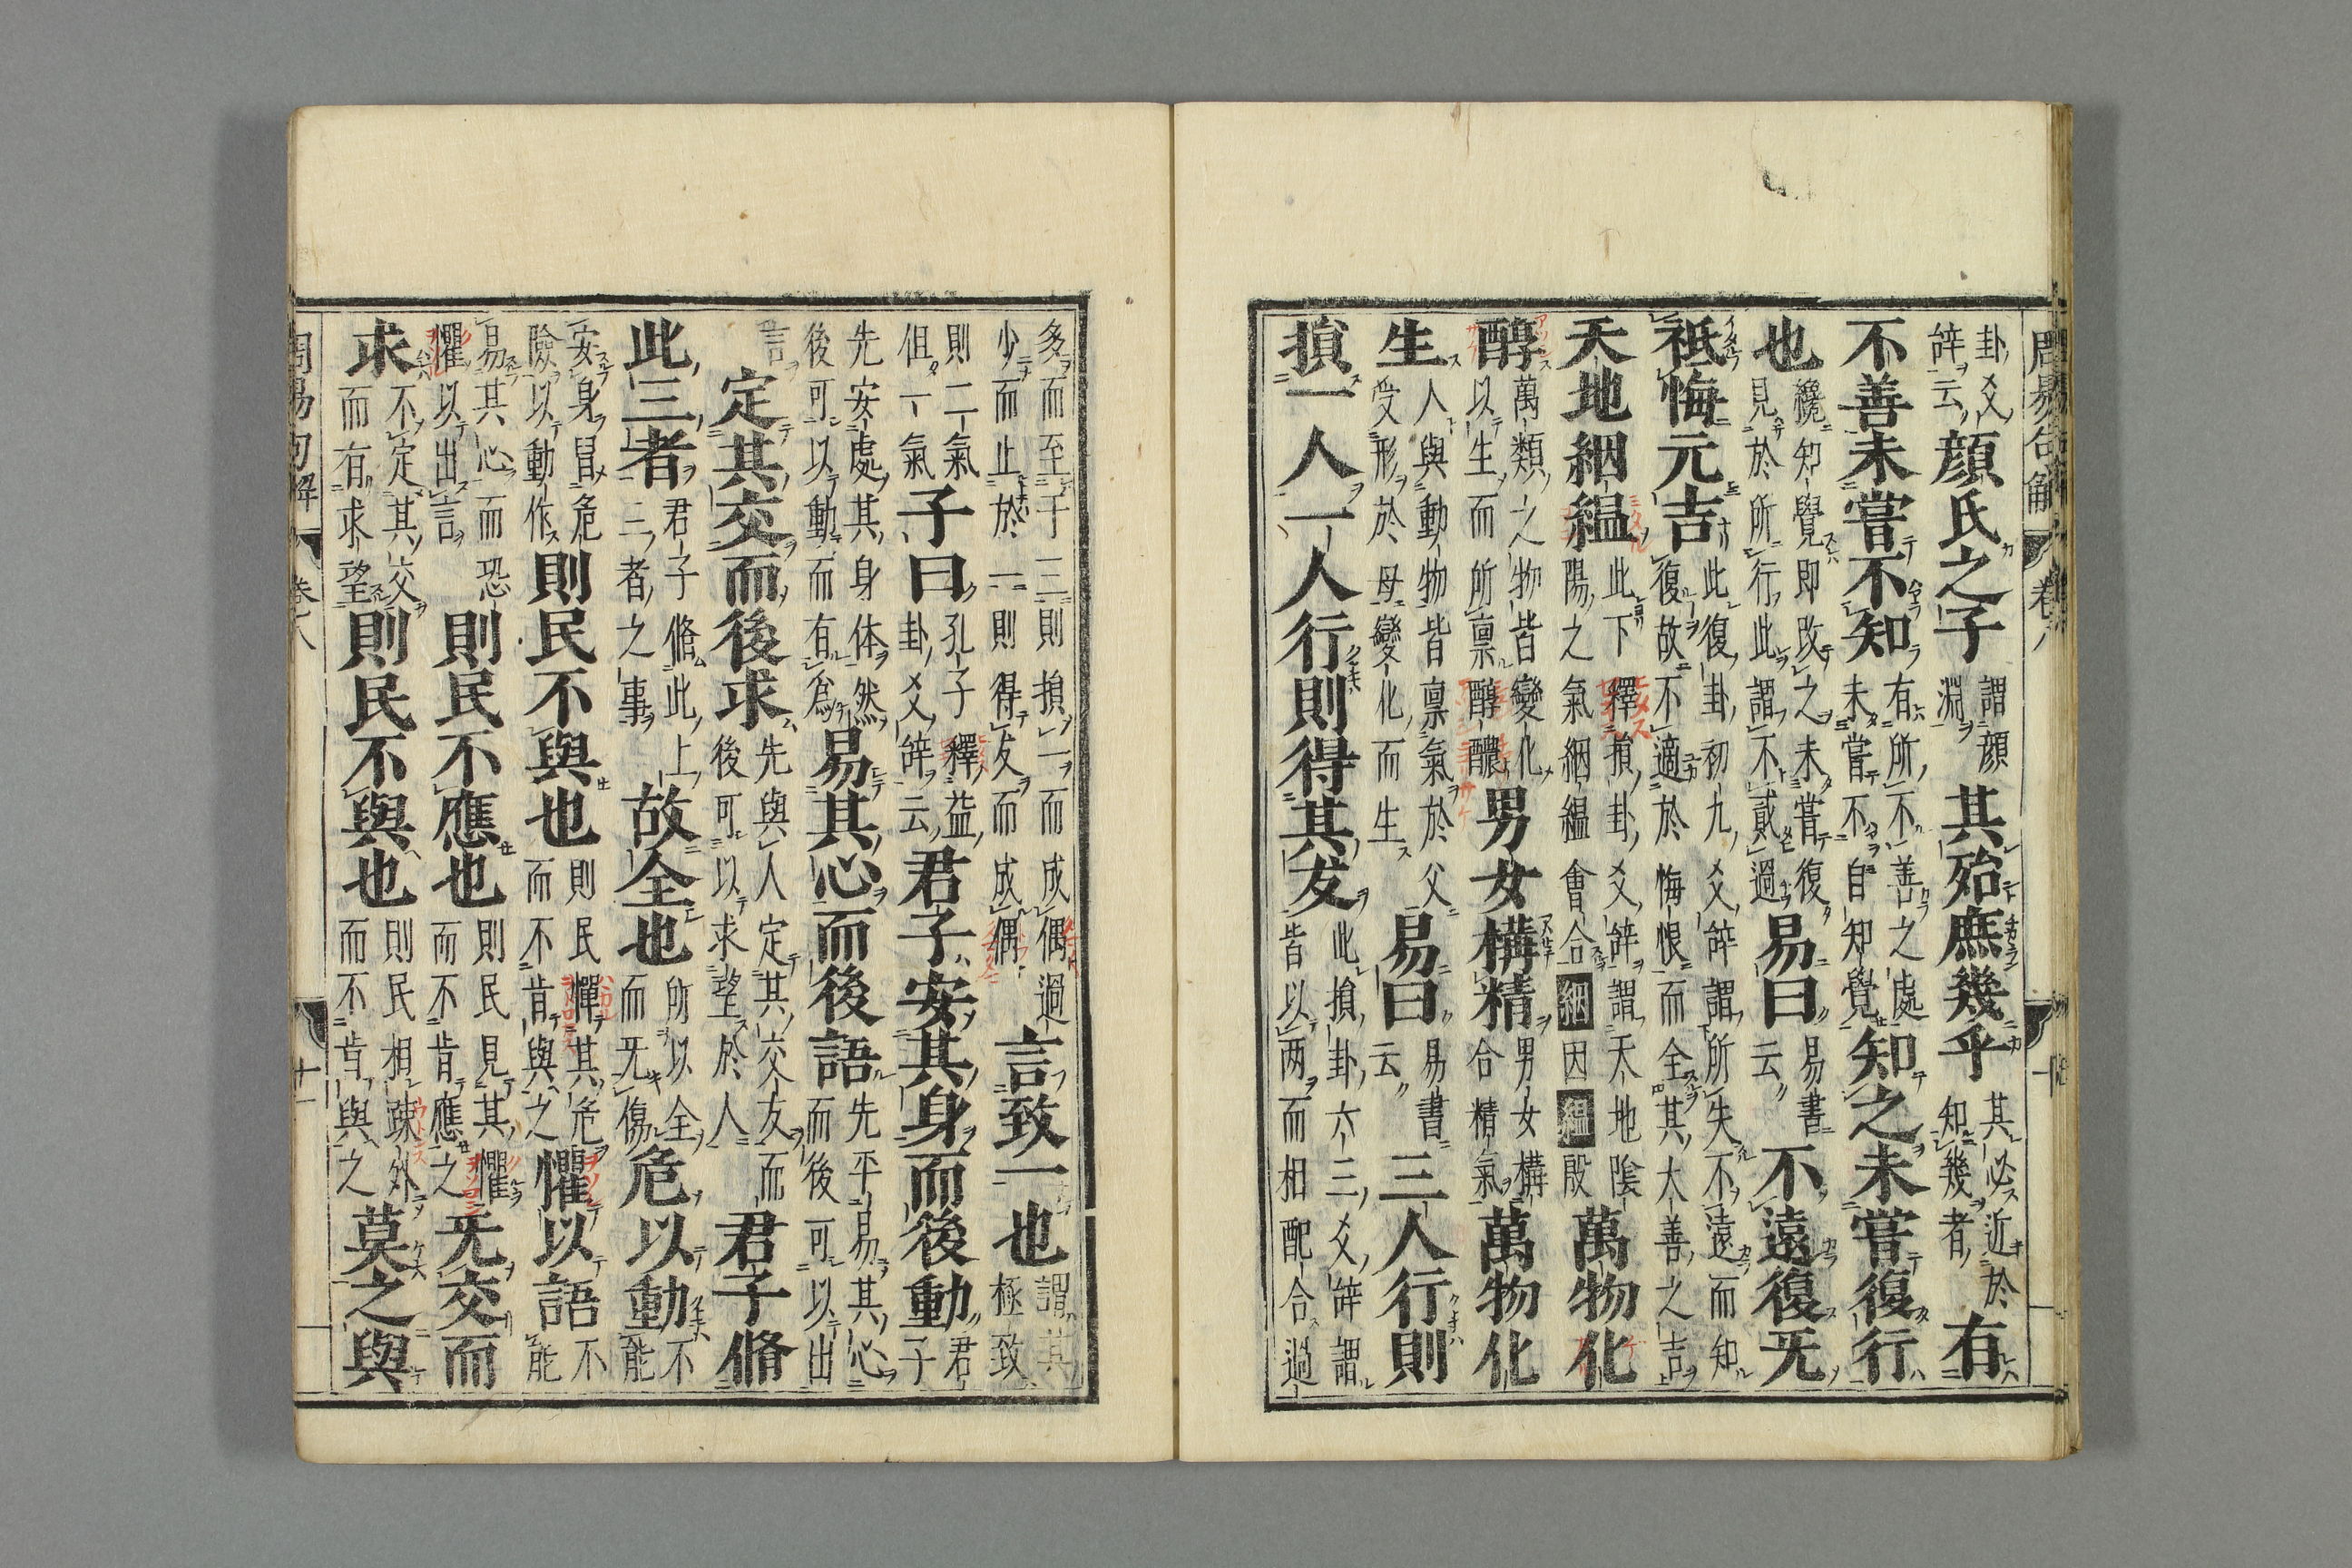 周易句解 卷八
卦爻辭云顔氏之子謂顔淵其殆庶幾乎其必近於知幾者有
不善未嘗不知有所不善之處未嘗不自知覺知之未嘗復行
也纔知覺即改之未嘗復見於所行此謂不貳過易曰易書云不遠復无
祗悔元吉此復卦初九爻辭謂所失不遠而知復故不適於悔恨而全其大善之吉
天地絪緼此下釋損卦爻辭謂天地陰陽之氣絪緼會合絪因緼殷萬物化
醇萬類之物皆變化以生而所禀醇醲男女構精男女構合精氣萬物化
生人與動物皆禀氣於父受形於母變化而生易曰易書云三人行則
損一人一人行則得其友此損卦六三爻辭謂皆以两而相配合過
多而至于三則損一而成偶過少而止於一則得友而成偶言致一也謂其極致
則二氣但一氣子曰孔子釋益卦爻辭云君子安其身而後動君子
先安處其身体然後可以動而有爲易其心而後語先平易其心而後可以出
言定其交而後求先與人定其交友而後可以求望於人君子脩
此三者君子脩此上三者之事故全也所以全而旡傷危以動不能
安身冒危險以動作則民不與也則民憚其危而不肯與之懼以語不能
易其心而恐懼以出言則民不應也則民見其懼而不肯應之旡交而
求不定其交而有求望則民不與也則民相疎外而不肯與之莫之與
周易句解 卷八 十一